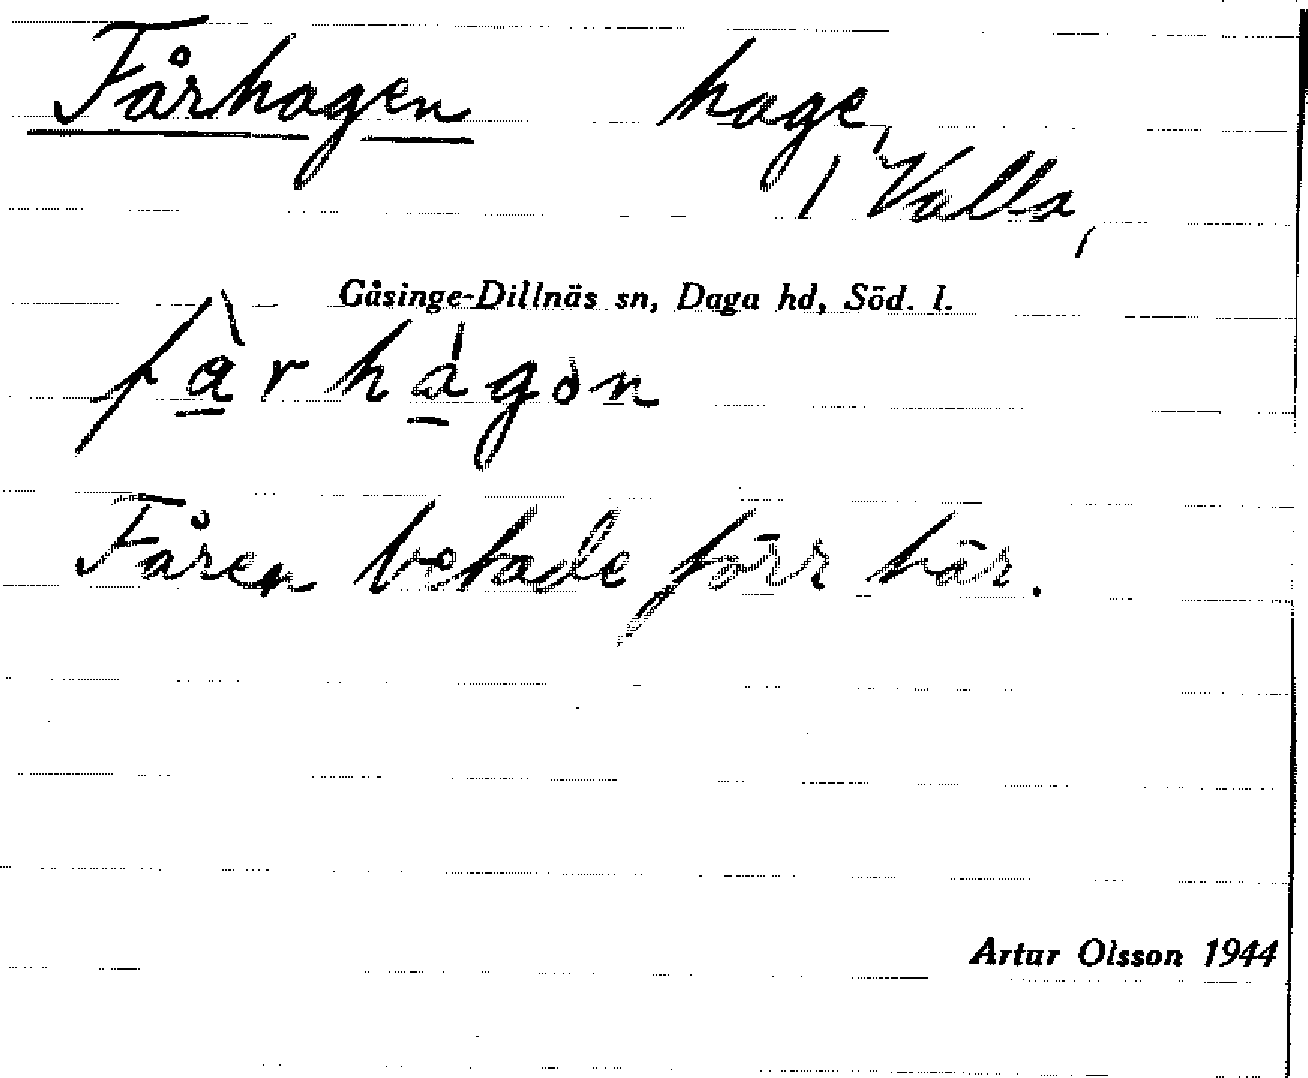 Fårhagen hage,
/ Valla,
Gåsinge-Dillnäs sn, Daga hd, Söd. l.
få̱̀rhǻ̱gȯn
Fåren betade förr här.
Artur Olsson 1944